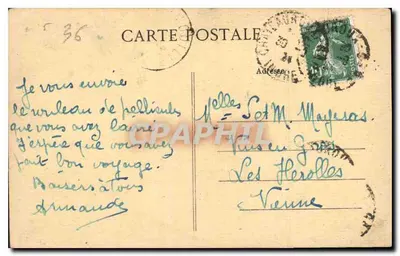 36
CARTE POSTALE
Adresse
CHATEAUROUX
INDRE
Je vous envoie
le rouleau de pellicules
que vous avez laissé
J'espère que vous avez
fait bon voyage.
Baisers à tous
Armande
Melles S et M. Mayeras
Les Herolles
Vienne
CPARTI